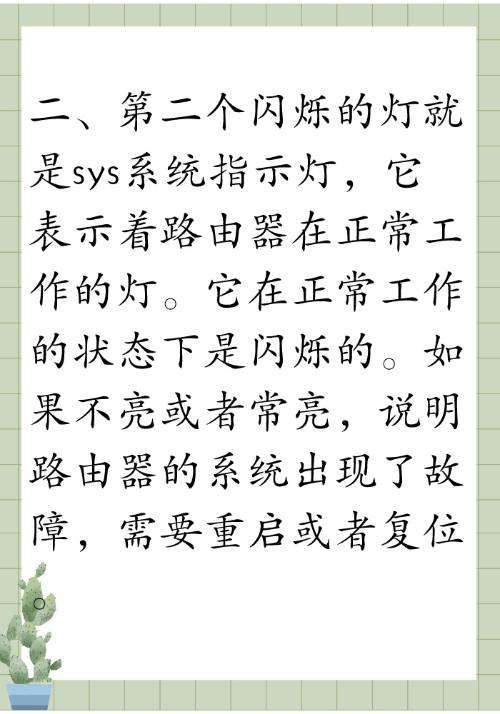 二、第二个闪烁的灯就
是sys系统指示灯，它
表示着路由器在正常工
作的灯。它在正常工作
的状态下是闪烁的。如
果不亮或者常亮，说明
路由器的系统出现了故
障，需要重启或者复位
。